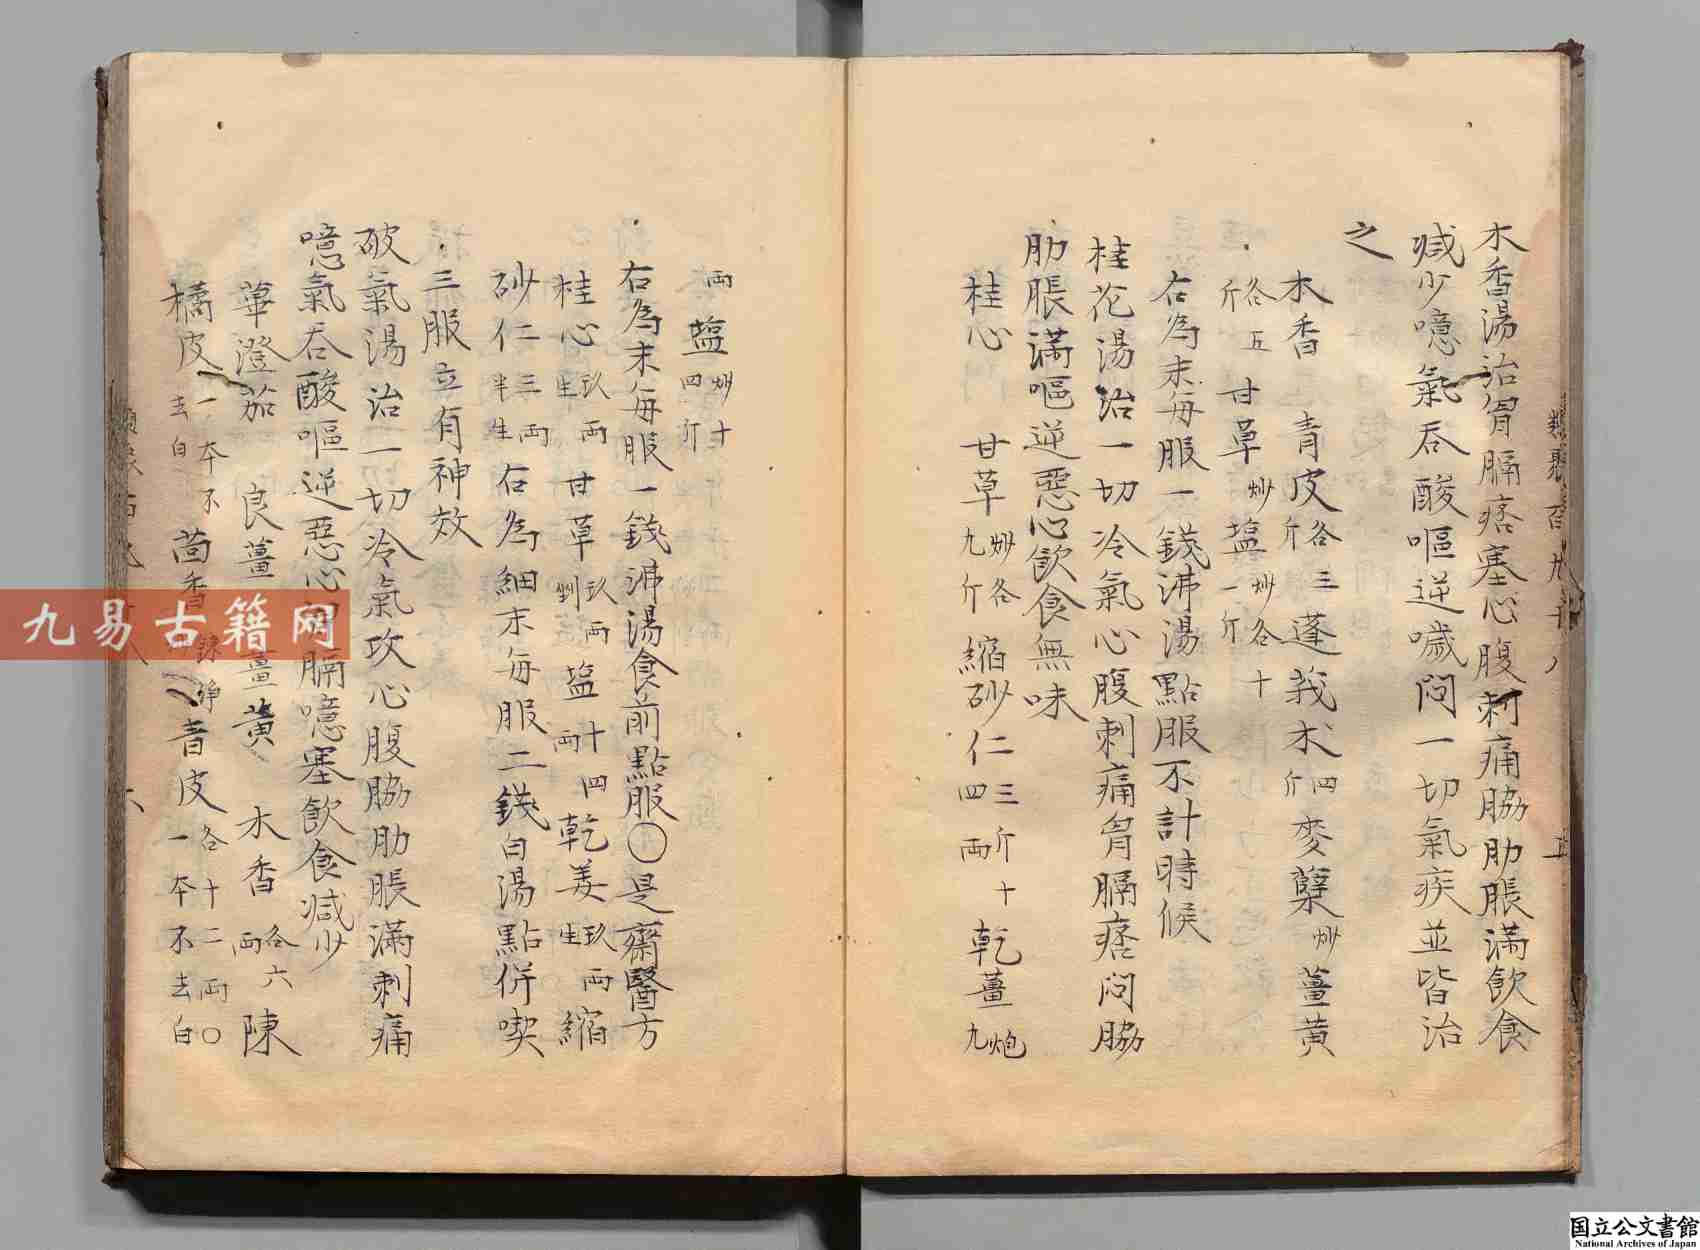 木香湯治胃膈痞塞心腹刺痛脇肋脹滿飲食
减少噫氣吞酸嘔逆噦悶一切氣疾並皆治
之
木香 青皮各三斤 蓬莪朮四斤 麥蘖炒 薑黄
各五斤 甘草炒 塩炒各十一斤
右為末每服一錢沸湯點服不計時候
桂花湯治一切冷氣心腹刺痛胃膈痞悶脇
肋脹滿嘔逆惡心飲食無味
桂心 甘草炒各九斤 縮砂仁二三斤十四兩 乾薑炮九
兩 塩炒十四斤
右為末每服一錢沸湯食前點服○是齋醫方
桂心玖兩生 甘草玖兩剉 塩十四兩 乾姜玖兩生 縮
砂仁三兩半生 右為細末每服二錢白湯點併喫
三服立有神效
破氣湯治一切冷氣攻心腹脇肋脹滿刺痛
噫氣吞酸嘔逆惡心膈噫塞飲食减少
蓽澄茄 良薑 薑黄 木香各六兩 陳
橘皮一本不去白 茴香 青皮各十二兩○一本不去白
九易古籍网
国立公文書館
National Archives of Japan